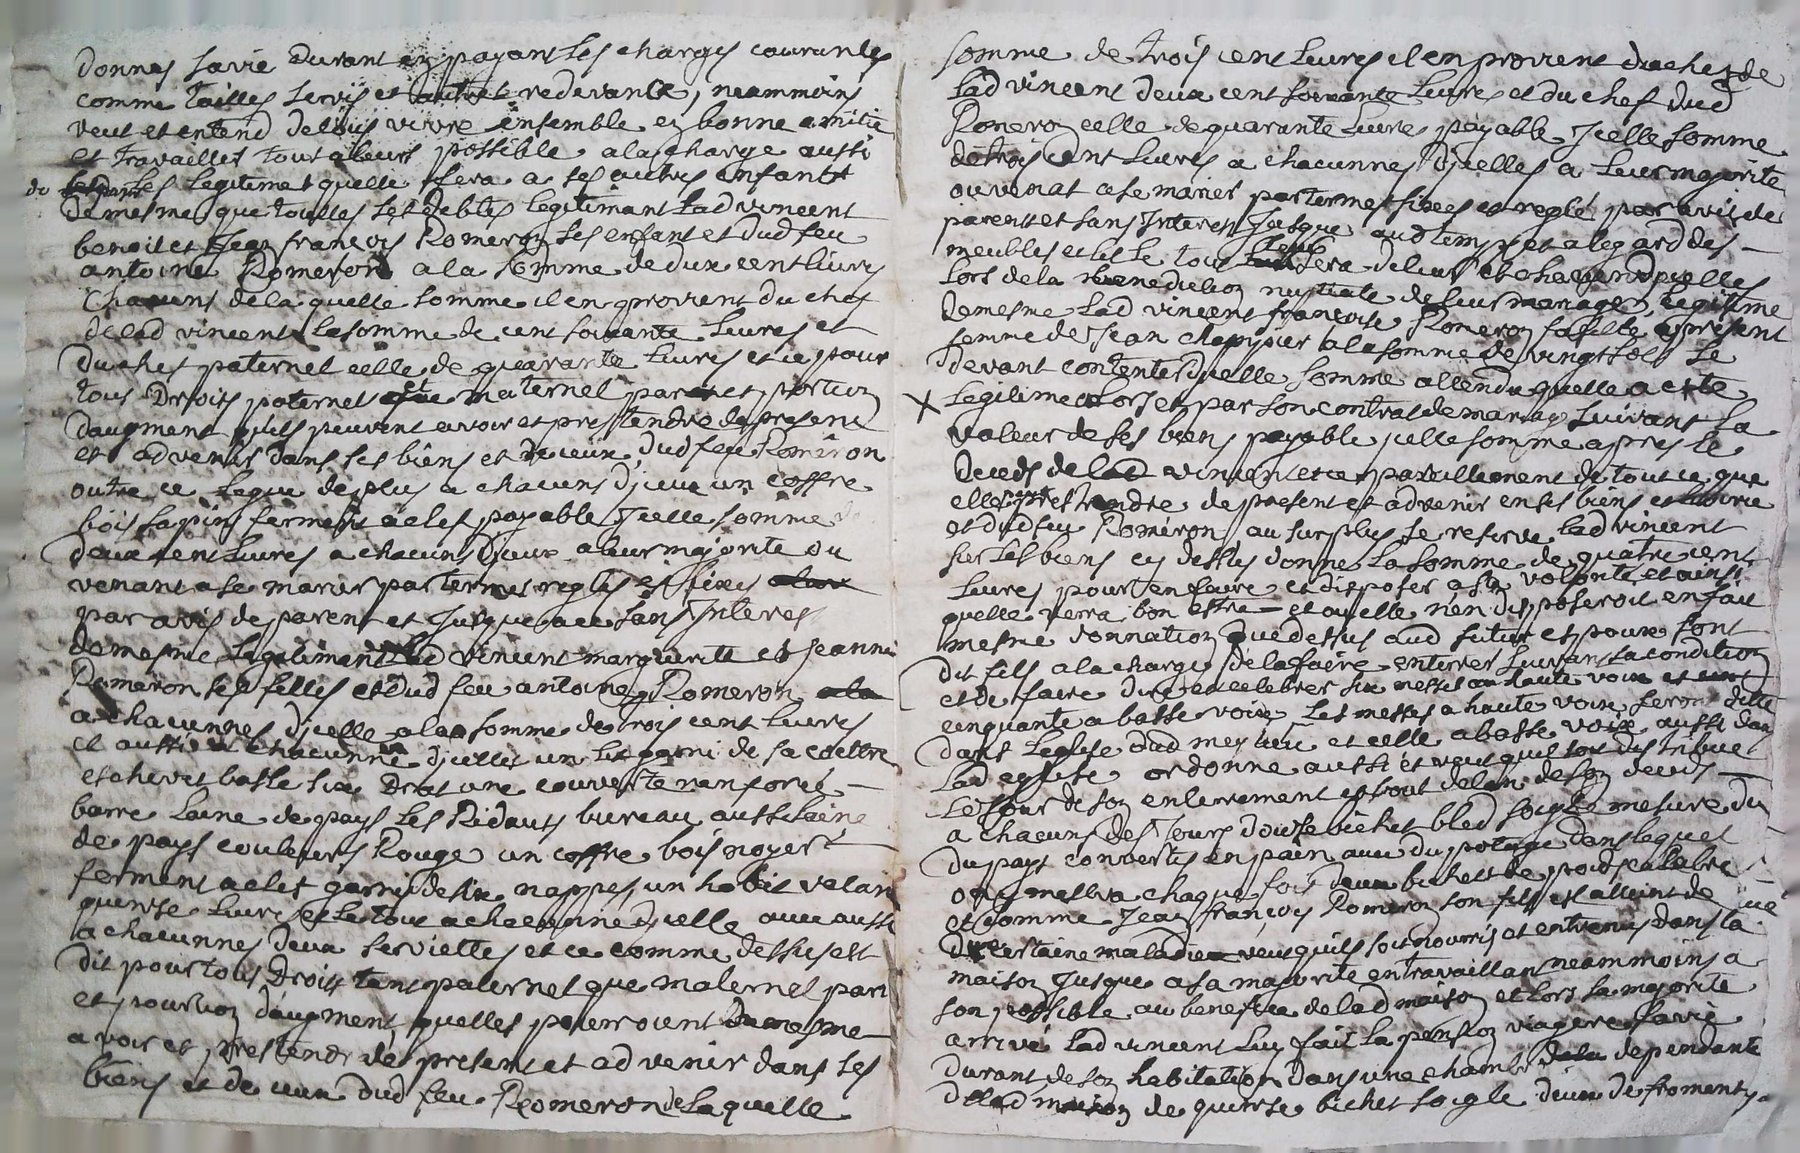 donnes savie durant en payant les charges courantes
comme tailles servis et autres redevance, neammoins
veut et entend de tous vivre ensemble en bonne amitie
et travailler tout a leurs possible a la charge aussi
les legitimes quelle fera a ses autres enfants
de mesme que touttes ses debtes legitimant lad vincent
benoit et Jean françois Romeron ses enfant et dud feu
antoine Romeron a la somme de deux cent livres
chacuns de la quelle somme il en provient du chef
de lad vincent la somme de cent soixante livres et
du chef paternel celle de quarante livres et ce pour
tous droits paternel et maternel part et portion
daugment quils peuvent avoir et prettendre de present
et advenir dans ses biens et de ceux dud feu Romeron
outre ce legue de plus a chacuns dieux un coffre
bois sapin fermant a clef payable jcelle somme de
deux cent livres a chacuns dieux a leur majorite ou
venant a se marier par termes regles et fixes
par avis de parent et Jusque a ce sans Jnteres
de mesme legitimant lad vincent marguerite et Jeanne
Romeron ses filles et dud feu antoine Romeron
a chacunnes djcelle a la somme de trois cent livres
et aussi a chacunne djcelles un lit garni de sa coettre
et chevet basle six drat une couverte renforcé
barre laine de pays les Ridauts bureau aussi laine
de pays couleurs Rouge un coffre bois noyert
ferment a clef garni de six nappes, un habit valant
quinse livres et le tout a chacunne djcelle avec aussi
a chacunnes deux serviettes et ce comme dessus est
dit pour tous droits tant paternel que maternel part
et portion daugment quelles pourroient de mesme
avoir et prestendre de present et advenir dans ses
biens et de ceux dud feu Romeron de laquelle
somme de trois cent livres il en provient du chef de
lad vincent deux cent soixante livres et du chef dud
Romeron celle de quarante livres payable Jcelle somme
de trois cent livres a chacunnes djcelles a leur majorite
ou venat a se marier par termes fixes et reglé par avis de
parent et sans Jnterest Jusque aud temps et a legard des
meubles et le tout sera delivré a chacunne djcelles
lors de la benediction nuptiale de leur mariage, legitime
de mesme lad vincent françoise Romeron sa fille a present
femme de Jean chappuer a la somme de vingt sols se
devant contenter djcelle somme attendu quelle a este
X legitime alors et par son contrat de mariage suivant la
valeur de ses biens payable jcelle somme apres le
deceds de lad vincent et ce pareillement de tout ce que
elle peut prettendre de present et advenir en ses biens
et dud feu Romeron au surplus se reserve lad vincent
sur les biens cy dessus donne la somme de quatre cent
livres pour en faire et disposer a sa volonté et ainsi
quelle verra bon estre et ou elle nen disposeroit en fait
mesme donnation que dessus aud futur et pour sont
dit fils a la charge de la faire enterrer suivant sa condition
et de faire dire et celebrer six messes a haute voix et
cinquante a basse voix les messes a haute voix seront ditte
dans leglise dud mes lieu et celle a basse voix aussi dan
lad eglise ordonne aussi et veut quil soit distribué
le Jour de son enterrement et bout de lan de son deceds
a chacuns des Jours douse bichet bled soigle mesure du
du pays convertis en pain avec du potage dans lequel
on y mettra chaque fois deux bichets de
et comme Jean françois Romeron son fils est atteint de
certaine maladie veut quils soit nourris et entrenus dans la
maison Jusque a sa majorite en travaillan neammoins a
son possible au benefice de lad maison et lors sa majorite
arrivé lad vincent luy fait la pension viagere savie
durant de son habitation dans une chambre dependante
de lad maison de quinse bichet soigle deux de froment